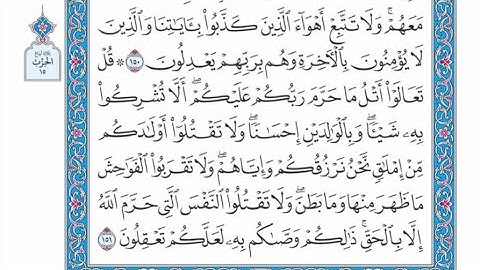 مَعَهُمْ ۚ وَلَا تَتَّبِعْ أَهْوَآءَ ٱلَّذِينَ كَذَّبُوا۟ بِـَٔايَـٰتِنَا وَٱلَّذِينَ
لَا يُؤْمِنُونَ بِٱلْـَٔاخِرَةِ وَهُم بِرَبِّهِمْ يَعْدِلُونَ ١٥٠ ۞ قُلْ
تَعَالَوْا۟ أَتْلُ مَا حَرَّمَ رَبُّكُمْ عَلَيْكُمْ ۖ أَلَّا تُشْرِكُوا۟
بِهِۦ شَيْـًٔا ۖ وَبِٱلْوَٰلِدَيْنِ إِحْسَـٰنًا ۖ وَلَا تَقْتُلُوٓا۟ أَوْلَـٰدَكُم
مِّنْ إِمْلَـٰقٍ ۖ نَّحْنُ نَرْزُقُكُمْ وَإِيَّاهُمْ ۖ وَلَا تَقْرَبُوا۟ ٱلْفَوَٰحِشَ
مَا ظَهَرَ مِنْهَا وَمَا بَطَنَ ۖ وَلَا تَقْتُلُوا۟ ٱلنَّفْسَ ٱلَّتِى حَرَّمَ ٱللَّهُ
إِلَّا بِٱلْحَقِّ ۚ ذَٰلِكُمْ وَصَّىٰكُم بِهِۦ لَعَلَّكُمْ تَعْقِلُونَ ١٥١
الحزب
١٥